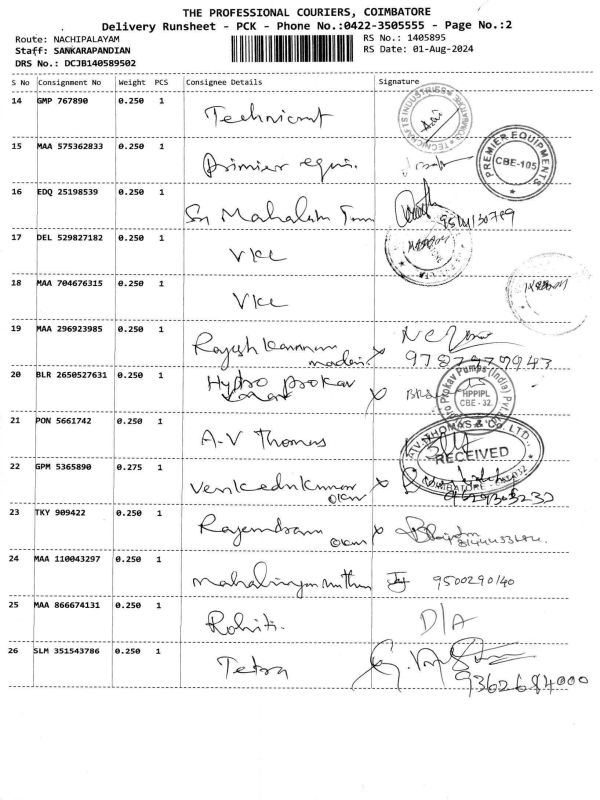 THE PROFESSIONAL COURIERS, COIMBATORE
Delivery Runsheet - PCK - Phone No.:0422-3505555 - Page No.:2
Route: NACHIPALAYAM
RS No.: 1405895
Staff: SANKARAPANDIAN
RS Date: 01-Aug-2024
DRS No.: DCJB140589502
S No Consignment No Weight PCS Consignee Details Signature
14 GMP 767890 0.250 1
15 MAA 575362833 0.250 1
PREMIER EQUIPMENTS
CBE-105
16 EDQ 25198539 0.250 1
Sri Mahalam
17 DEL 529827182 0.250 1
VKC
18 MAA 704676315 0.250 1
VKC
19 MAA 296923985 0.250 1
Rajesh Kannan
20 BLR 2650527631 0.250 1
Hydro prokav
Prokav Pumps (India)
HPPIPL
CBE - 32
21 PON 5661742 0.250 1
A-V Thomas
A.V. THOMAS & Co. LTD.,
RECEIVED
COIMBATORE
22 GPM 5365890 0.275 1
Venkedn Kumar
23 TKY 909422 0.250 1
Rajendran
24 MAA 110043297 0.250 1
9500290140
25 MAA 866674131 0.250 1
Rohiti. D/A
26 SLM 351543786 0.250 1
Tetra
9362684000